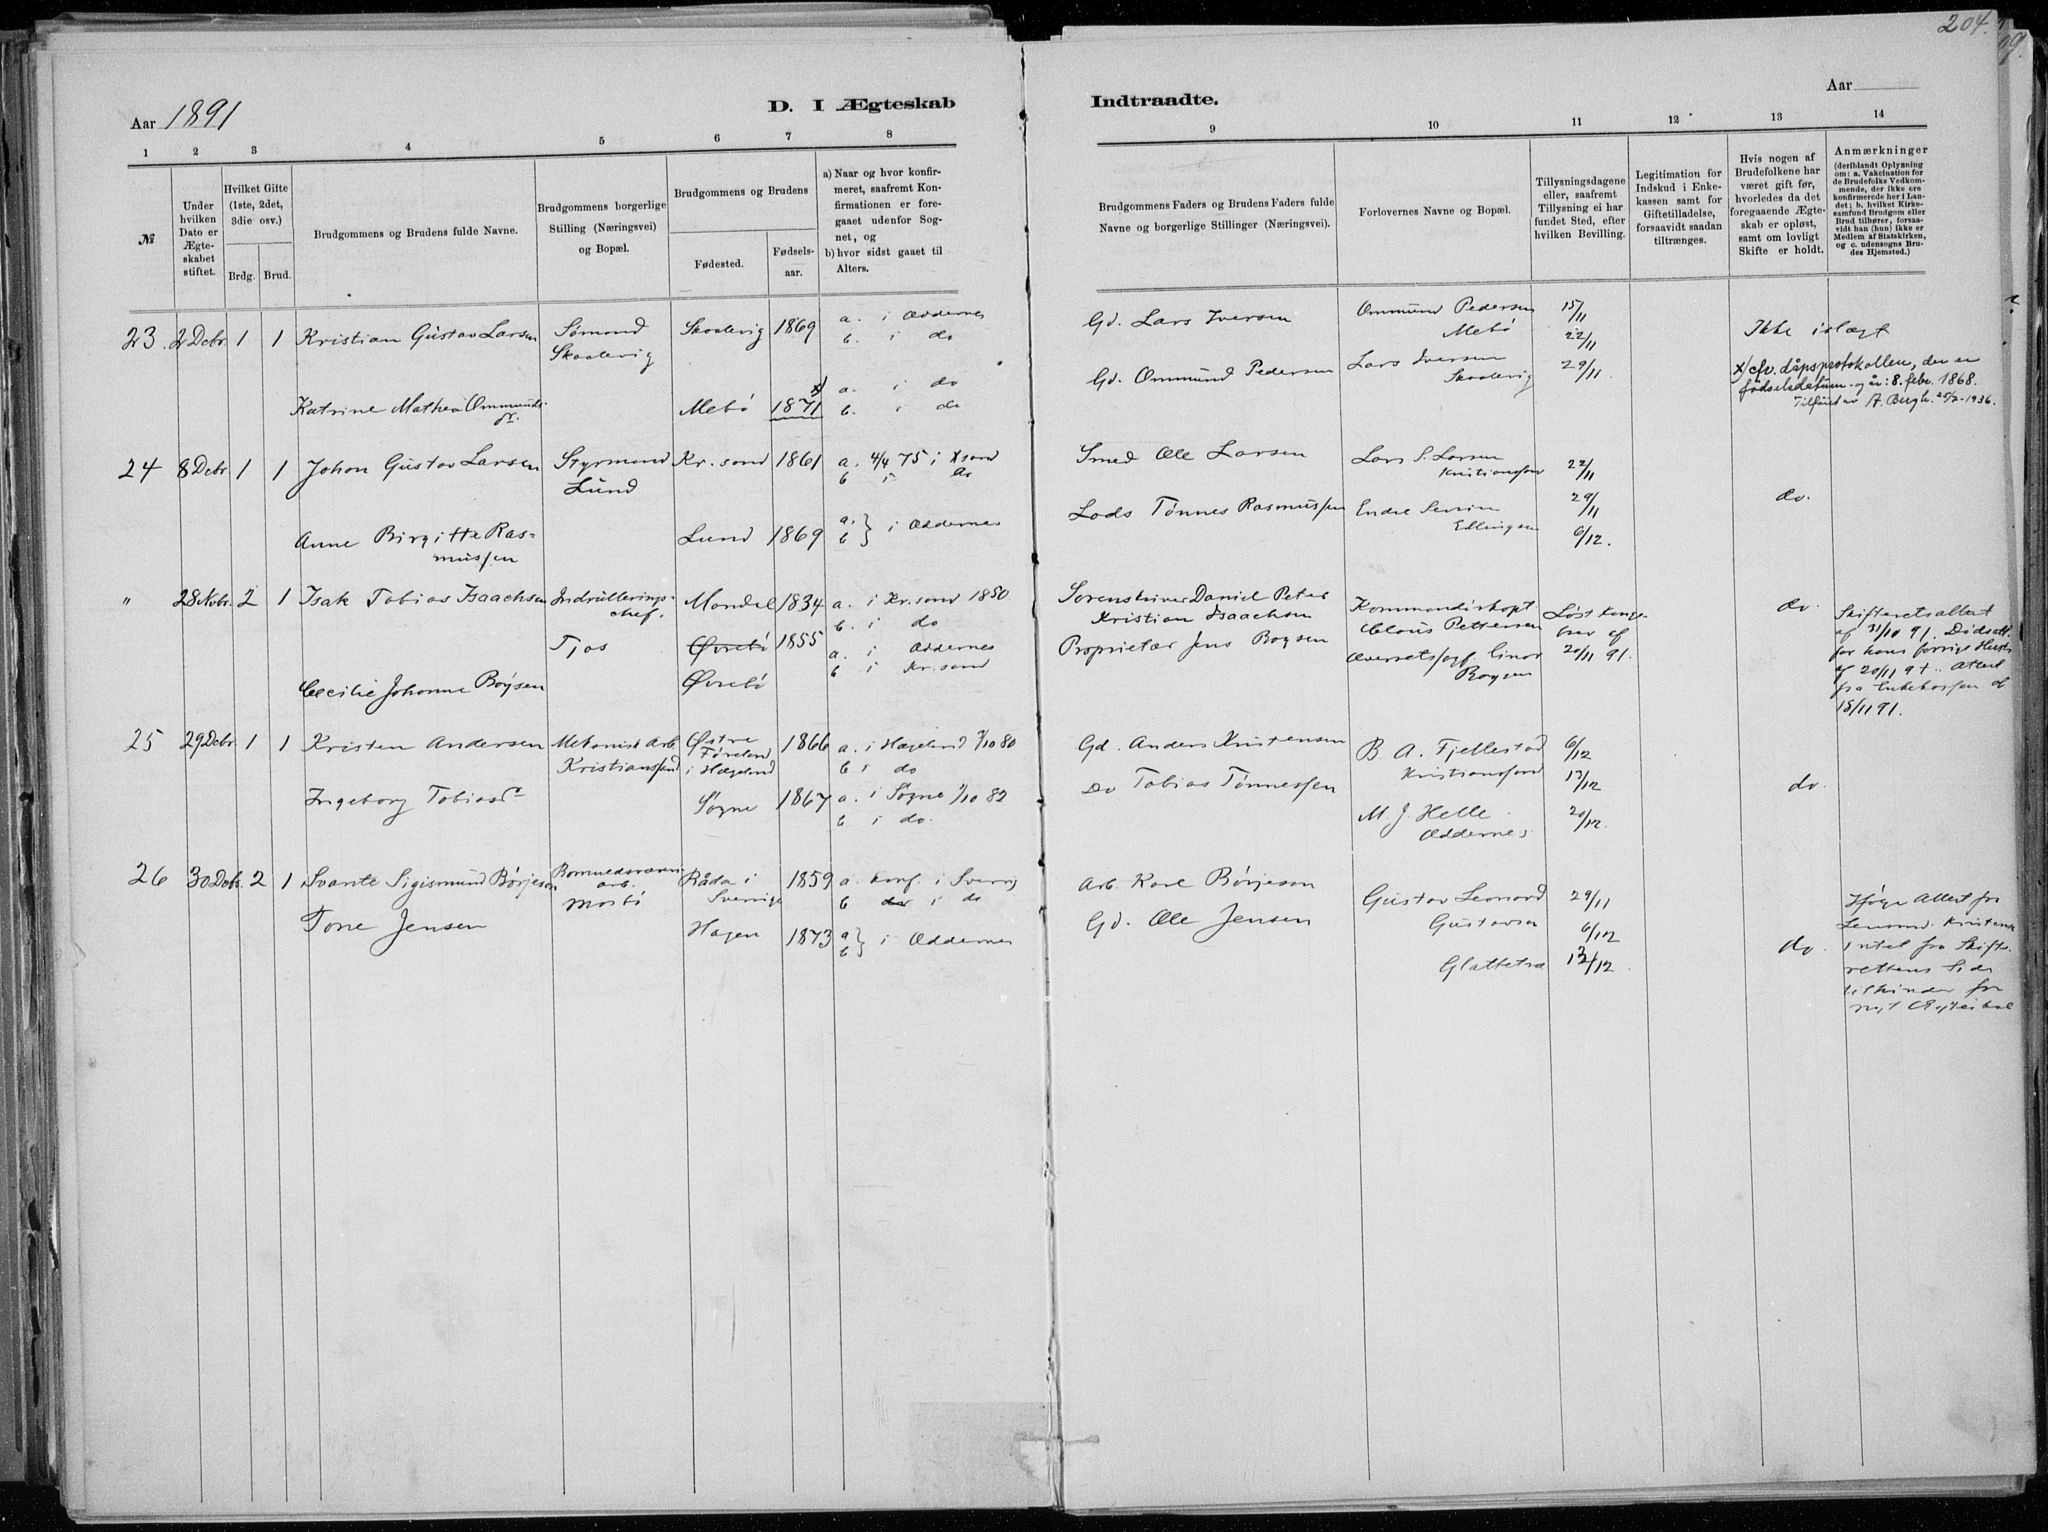 204.
Aar 1891
D. I Ægteskab
Indtraadte.
Aar
1 2 3 4 5 6 7 8
9 10 11 12 13 14
№
Under hvilken Dato er Ægteskabet stiftet.
Hvilket Gifte (1ste, 2det, 3die osv.)
Brdg. Brud.
Brudgommens og Brudens fulde Navne.
Brudgommens borgerlige Stilling (Næringsvei) og Bopæl.
Brudgommens og Brudens
Fødested. Fødselsaar.
a) Naar og hvor konfirmeret, saafremt Konfirmationen er foregaaet udenfor Sognet, og
b) hvor sidst gaaet til Alters.
Brudgommens Faders og Brudens Faders fulde Navne og borgerlige Stillinger (Næringsvei).
Forlovernes Navne og Bopæl.
Tillysningsdagene eller, saafremt Tillysning ei har fundet Sted, efter hvilken Bevilling.
Legitimation for Indskud i Enkekassen samt for Giftetilladelse, forsaavidt saadan tiltrænges.
Hvis nogen af Brudefolkene har været gift før, hvorledes da det foregaaende Ægteskab er opløst, samt om lovligt Skifte er holdt.
Anmærkninger (deriblandt Oplysning om: a. Vakcination for de Brudefolks Vedkommende, der ikke ere konfirmerede her i Landet; b. hvilket Kirkesamfund Brudgom eller Brud tilhører, forsaavidt han (hun) ikke er Medlem af Statskirken, og c. udensogns Brudes Hjemsted.)
23. 2 Debr 1 1 Kristian Gustav Larsen Sømand Skaalevig 1869 a. i Oddernes
Skaalevig b. i do
Gd. Lars Iversen Ommund Pedersen Mebø 15/11 22/11 Ikke i slægt
Katrine Mathea Ommundsdr. Mebø 1871 x) a. i do
b. i do
Gd. Ommund Pedersen Lars Iversen Skaalevig 29/11
x) cfr. dåpsprotokollen, der er
fødselsdatum og år: 8. febr. 1868.
Tilføiet av A. Bergh. 25/2-1936.
24 8 Debr 1 1 Johan Gustav Larsen Styrmand Kr.sand 1861 a. 4/4 75 i Xsand
Lund b i do
Smed Ole Larsen Lars S. Larsen Kristianssand 22/11
Anne Birgitte Rasmussen Lund 1869 a. b } i Oddernes
Lods Tønnes Rasmussen Endre Severin Ellingsen 29/11 6/12. do.
" 28 Novbr. 2 1 Isak Tobias Isaachsen Indrulleringschef. Mandal 1834 a. i Kr.sand 1850
Tjos b. i do
Sorenskriver Daniel Peter Kristian Isaachsen Kommandørkapt Claus Pettersen Løst Kongebrev af 20/11 91. do.
Øvrebø 1855 a. i Oddernes
b i Kr.sand
Cecilie Johanne Boysen Øvrebø
Proprietær Jens Boysen Overretssagf. Einar Boysen
Skifteretsattest
af 31/10 91. Dødsatt.
for hans forrige Hustr
af 20/11 91. Attest
fra Enkekassen af
18/11 91.
25 29 Debr 1 1 Kristen Andersen Mekanisk Arb. Østre 1866 a. i Hægeland /10 80
Kristianssand Føreland i Hægeland b i do
Gd. Anders Kristensen B A. Fjellestad Kristianssand 6/12 13/12
Ingeborg Tobiasdr Søgne 1867 a. i Søgne 1/10 82
b i do.
Do Tobias Tønnessen M. J. Helle Oddernes 20/12. do.
26 30 Debr. 2 1 Svante Sigismund Børjeson arb. Råda i Sverrige 1859 a. konf. i Sverrig
Mosbø b i do
Arb. Karl Børjeson Gustav Leonard Gustavsen 29/11 6/12
Tone Jensen Hagen 1873 a b } i Oddernes
Gd. Ole Jensen Glattetre 13/12 do
Ifølge Attest fra
Lensmd. Kristensen
Intet fra Skifterettens Side
til Hinder for
nyt Ægteskab